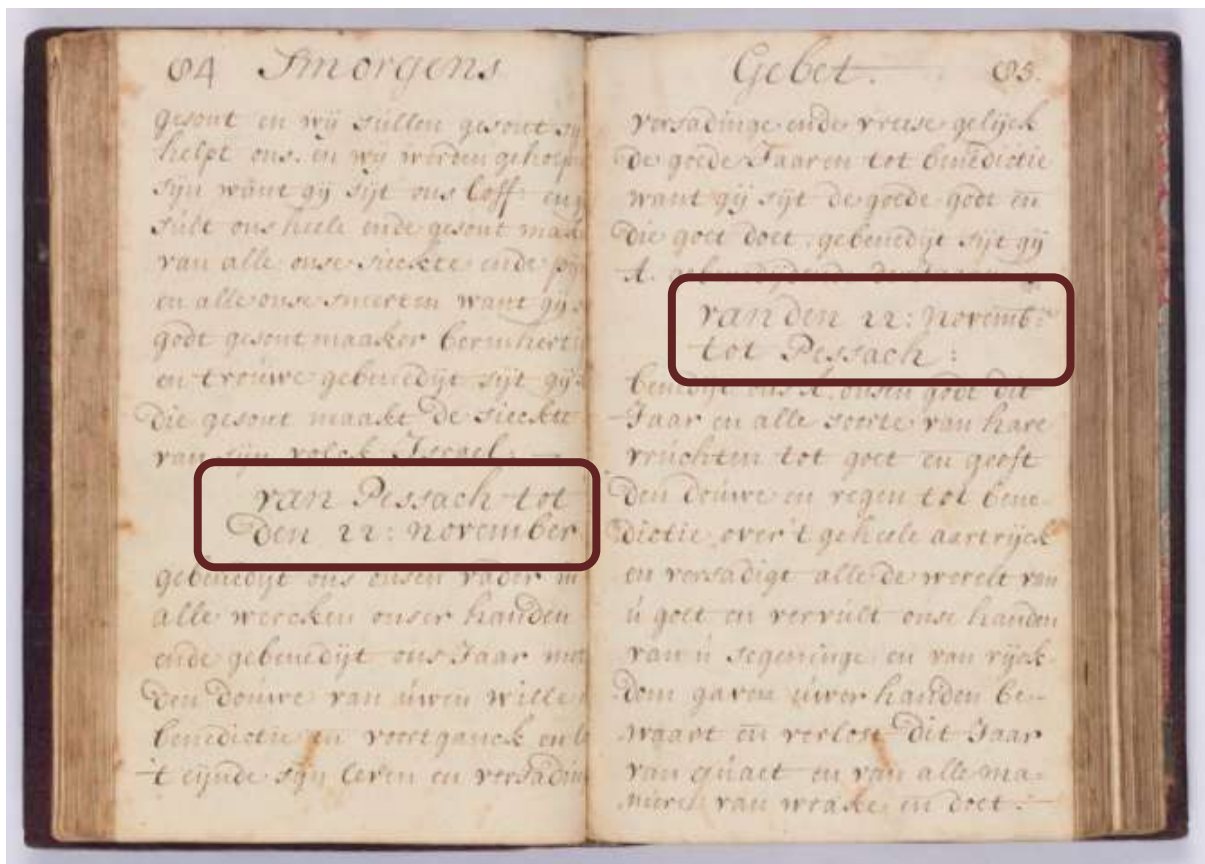 84 Smorgens
gesont en wij sullen gesont
helpt ons. en wij werden
sijn want gij sijt ons loff
sult ons heele ende gesont
van alle onse sieckte ende
en alle onse smerten want
godt gesont maaker
en trouwe gebenedijt sijt
die gesont maakt de sieckte
van sijn volck Israel:
van Pessach tot
den 22: november
gebenedijt ons onsen vader in
alle wercken onser handen
ende gebenedijt ons Jaar met
den douwe van uwen wille
benedictie en voortganck
't eijnde sijn leven en
Gebet. 85.
versadinge ende vreese gelijck
de goede Jaaren tot benedictie
want gij sijt de goede godt en
die goet doet. gebenedijt sijt gij
A.
van den 22: novemb:
tot Pessach:
benedijt ons A. onsen godt dit
Jaar en alle soorte van hare
vruchten tot goet en geeft
den douwe en regen tot bene-
dictie over 't geheele aartrijck
en versadigt alle de werelt van
u goet en vervult onse handen
van u segeninge en van rijck-
dom gaven uwer handen be-
waart en verlost dit Jaar
van quaet en van alle ma-
nieren van